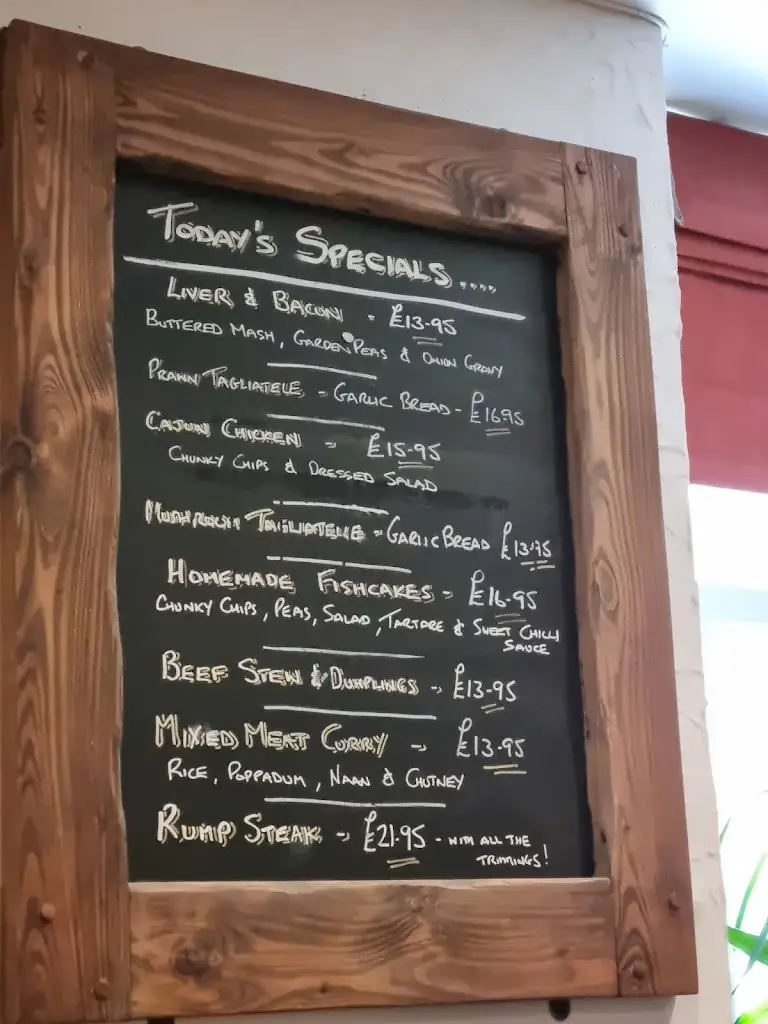 TODAY'S SPECIALS.....
LIVER & BACON - £13-95
BUTTERED MASH, GARDEN PEAS & ONION GRAVY
PRAWN TAGLIATELE - GARLIC BREAD - £16-95
CAJUN CHICKEN - £15-95
CHUNKY CHIPS & DRESSED SALAD
MUSHROOM TAGLIATELLE - GARLIC BREAD £13-95
HOMEMADE FISHCAKES - £16-95
CHUNKY CHIPS, PEAS, SALAD, TARTARE & SWEET CHILLI
SAUCE
BEEF STEW & DUMPLINGS - £13-95
MIXED MEAT CURRY - £13-95
RICE, POPPADUM, NAAN & CHUTNEY
RUMP STEAK - £21-95 - WITH ALL THE
TRIMMINGS!